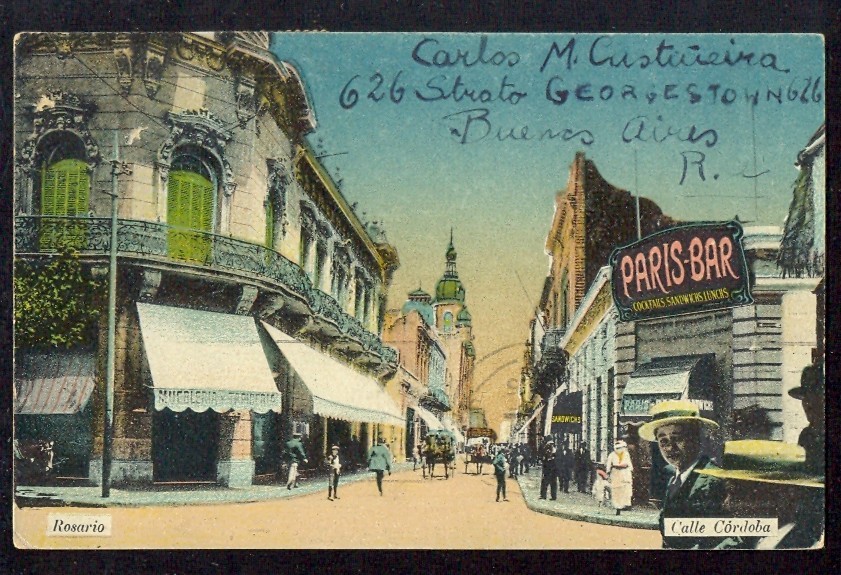 Carlos M. Custiñeira
626 Strato GEORGESTOWN 626
Buenos Aires
R.
PARIS-BAR
COCKTAILS, SANDWICHS, LUNCHS
MUEBLERIA Y TAPICERIA
SANDWICHS
Rosario
Calle Córdoba